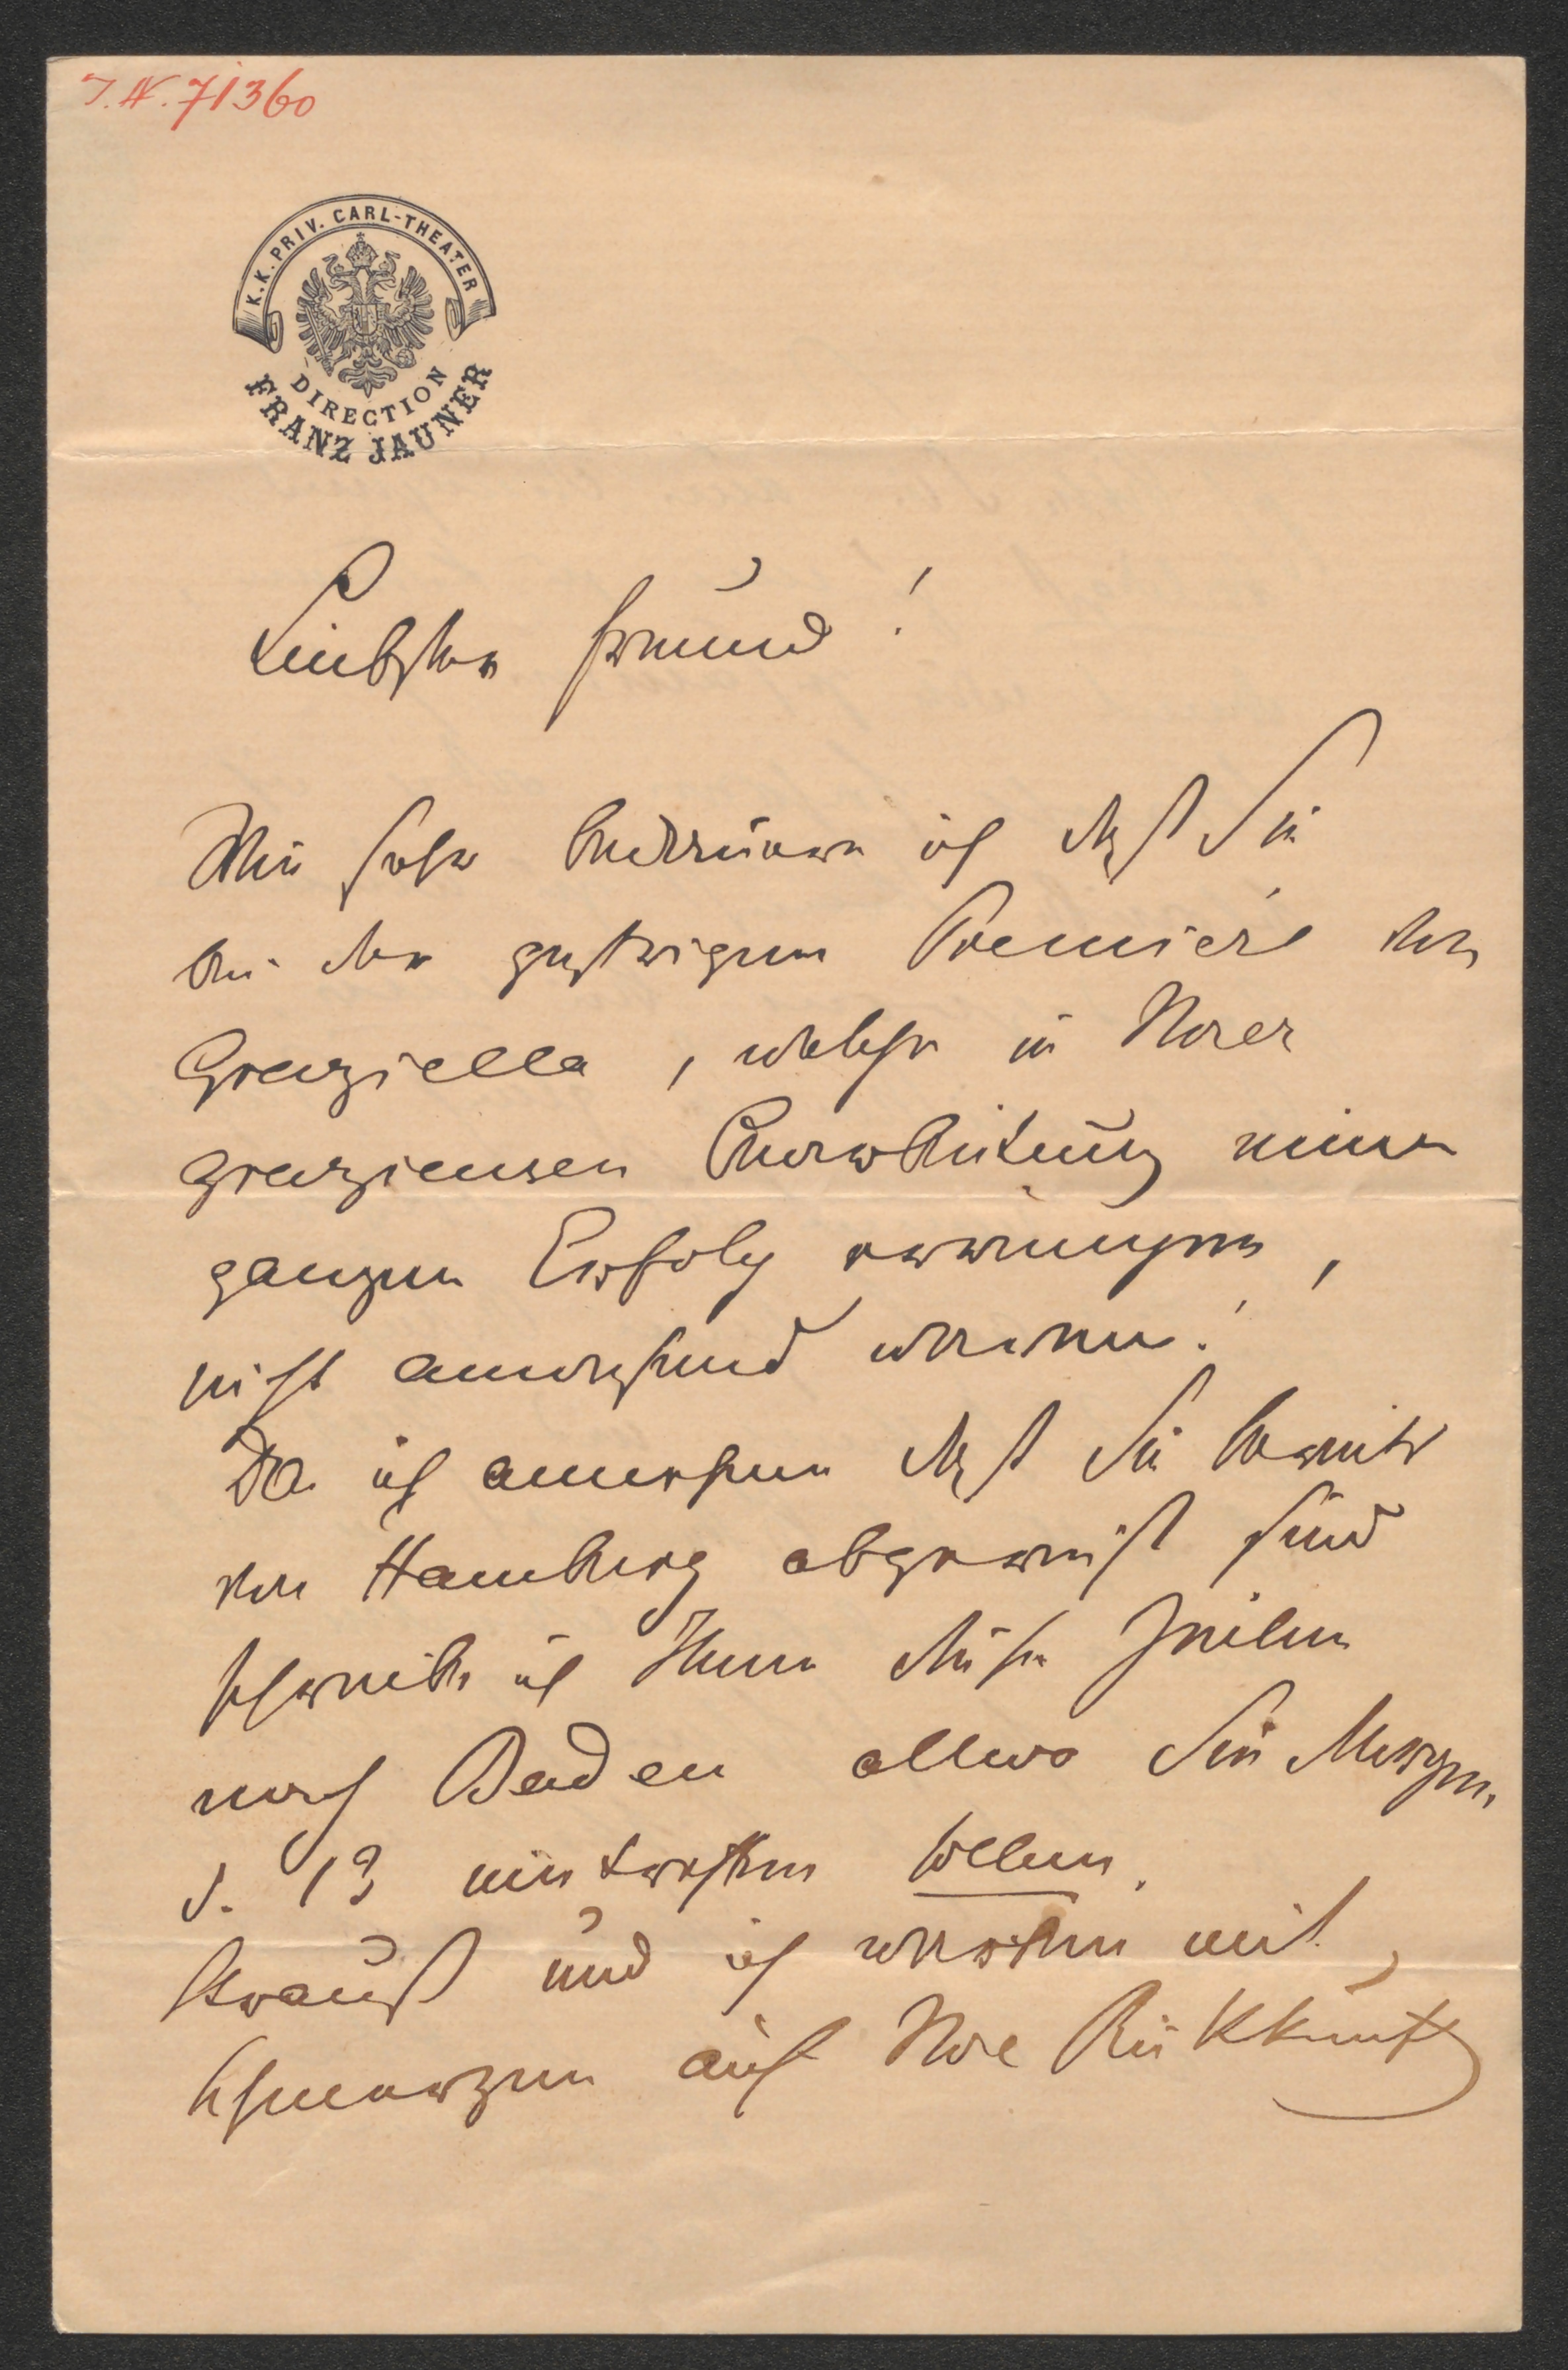 J. N. 71360
K. K. PRIV. CARL-THEATER
DIRECTION
FRANZ JAUNER
Liebster Freund!
Wie sehr bedauere ich daß Sie
bei der gestrigen Première der
Graziella, welche in Ihrer
graziensen Bearbeitung einen
ganzen Erfolg errungen,
nicht anwesend waren!
Da ich annehme daß Sie bereits
von Hamburg abgereist sind
schreibe ich Ihnen diese Zeilen
nach Baden allwo Sie Morgen,
d. 13 eintreffen sollen.
Strauß und ich warten mit
Schmerzen auf Ihre Rückkunft